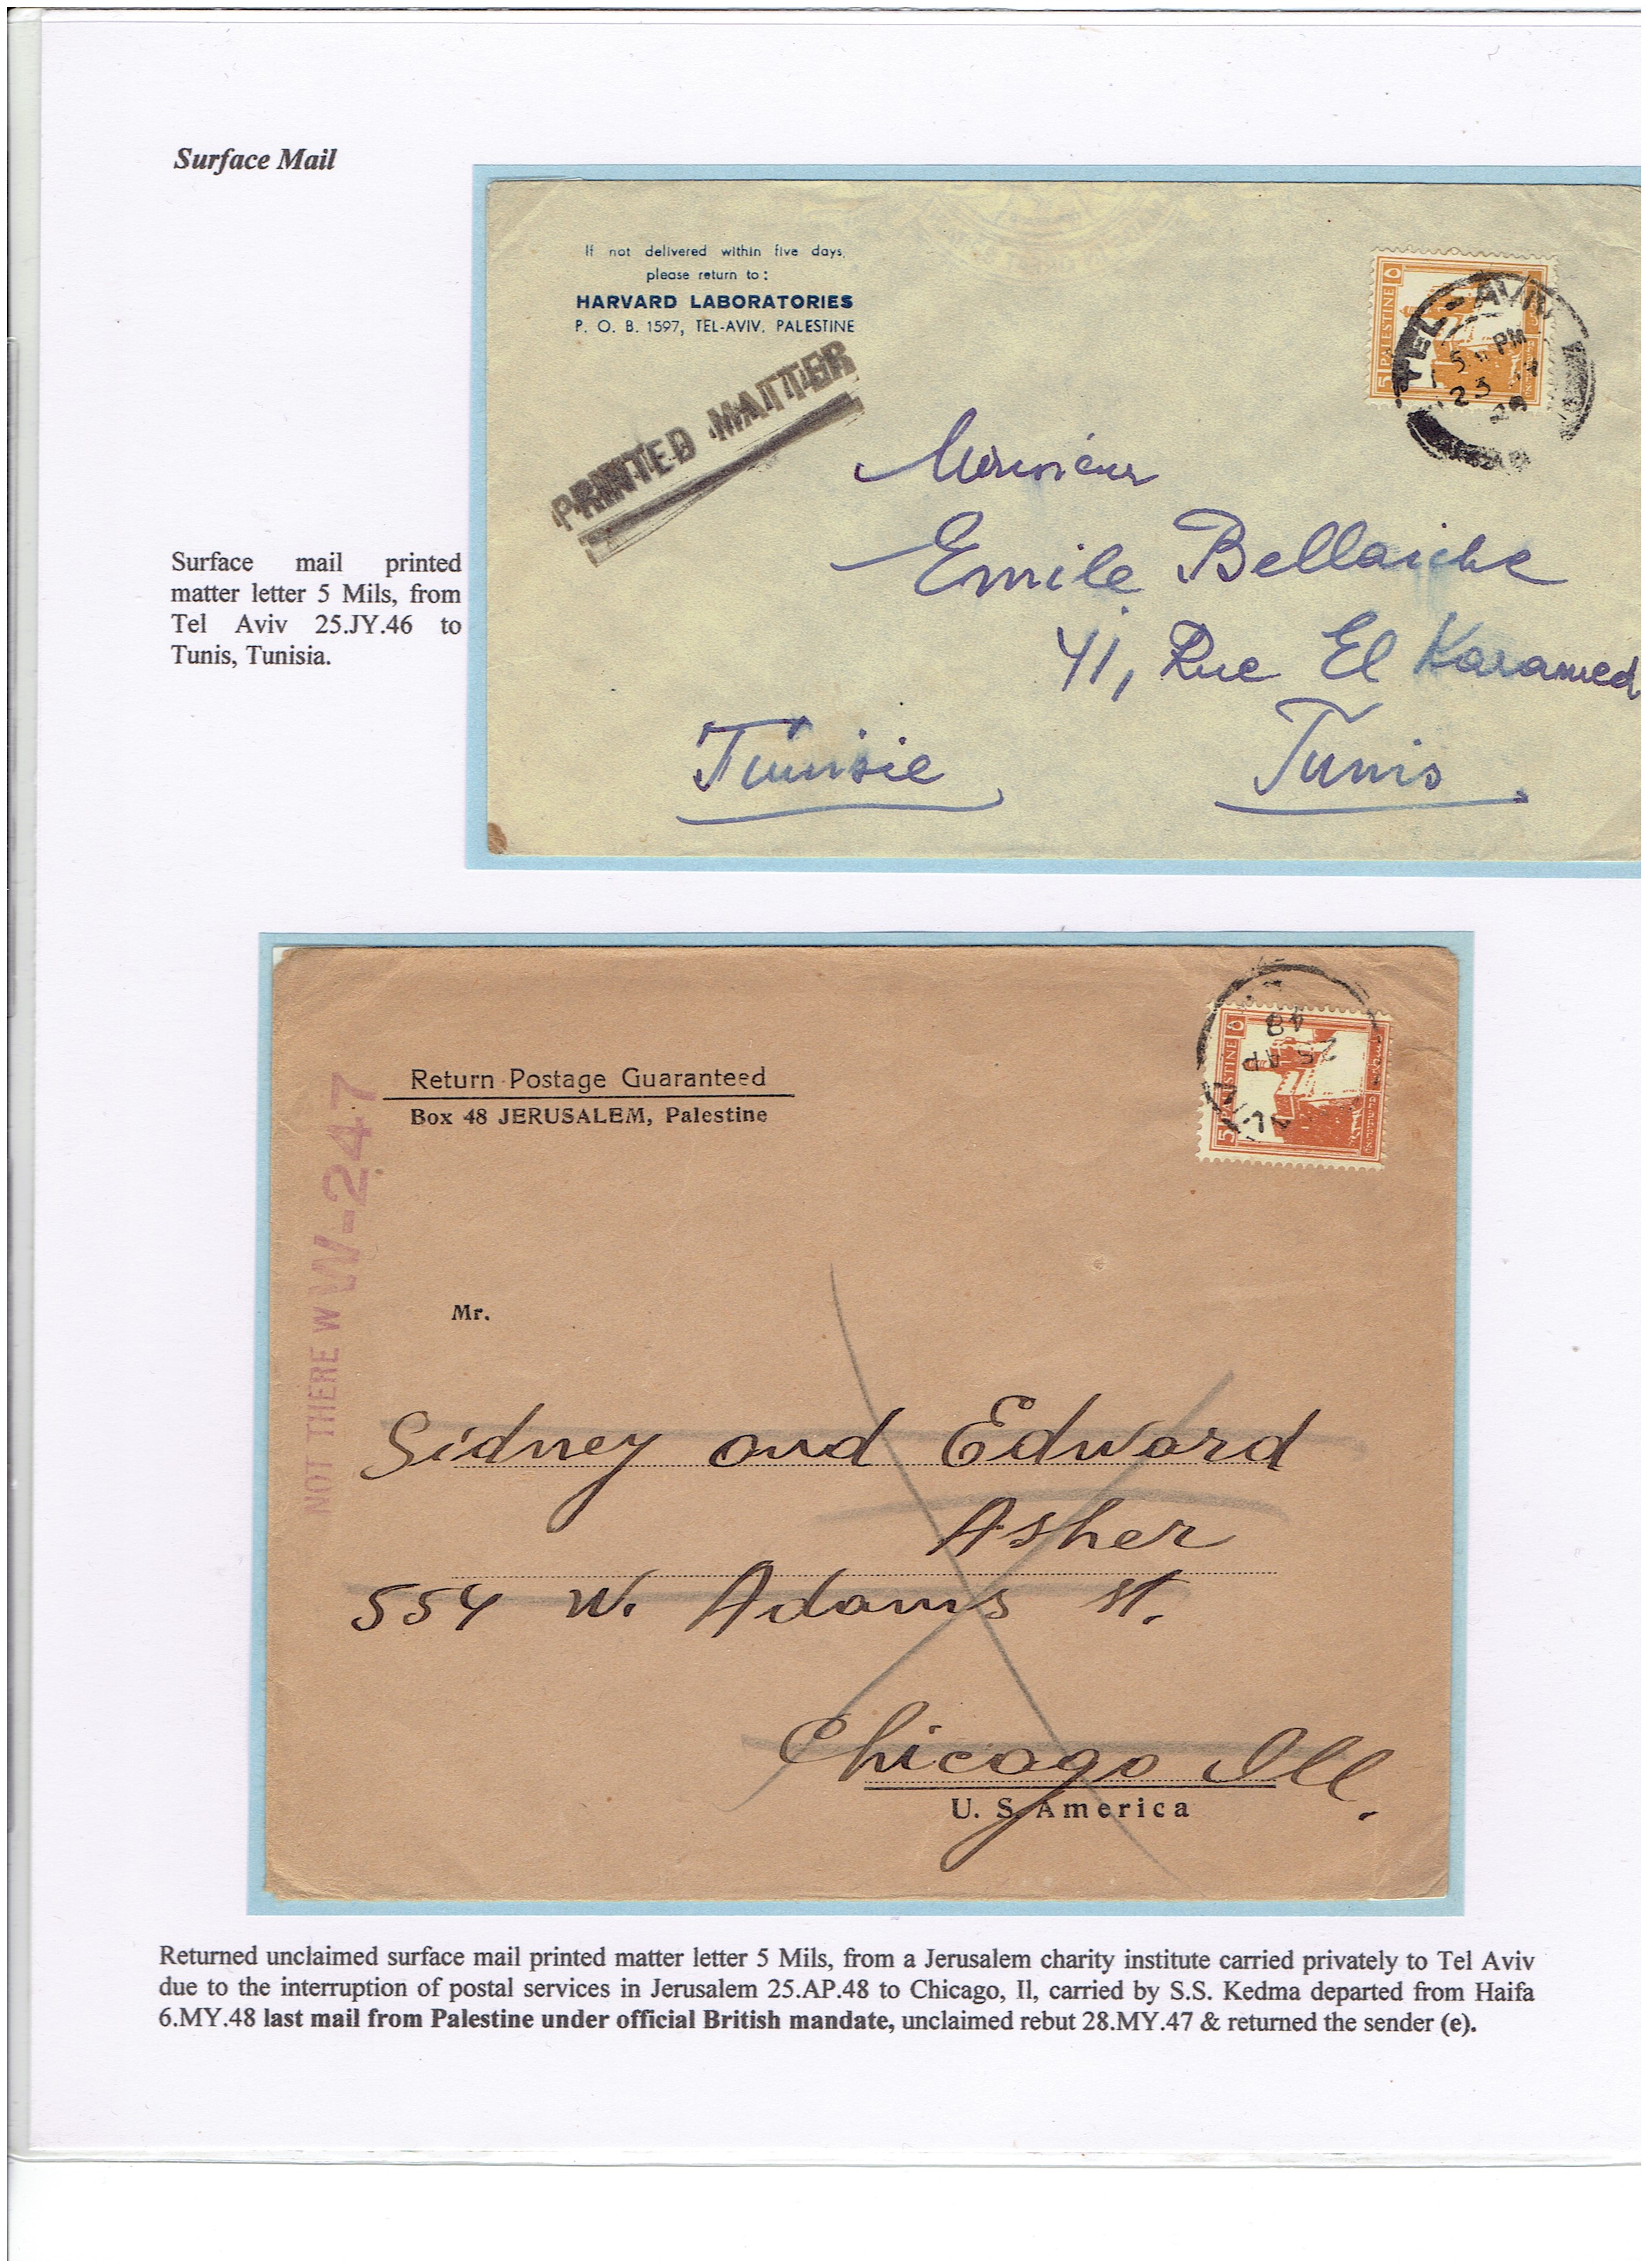 Surface Mail
If not delivered within five days,
please return to:
HARVARD LABORATORIES
P. O. B. 1597, TEL-AVIV, PALESTINE
PRINTED MATTER
5 PALESTINE
TEL-AVIV
PM
23
Monsieur
Emile Bellaiche
41, Rue El Karamed
Tunisie Tunis
Surface mail printed
matter letter 5 Mils, from
Tel Aviv 25.JY.46 to
Tunis, Tunisia.
Return Postage Guaranteed
Box 48 JERUSALEM, Palestine
5 PALESTINE
25 AP
48
NOT THERE W W-247
Mr.
Sidney and Edward
Asher
554 W. Adams St.
Chicago Ill.
U. S. America
Returned unclaimed surface mail printed matter letter 5 Mils, from a Jerusalem charity institute carried privately to Tel Aviv
due to the interruption of postal services in Jerusalem 25.AP.48 to Chicago, Il, carried by S.S. Kedma departed from Haifa
6.MY.48 last mail from Palestine under official British mandate, unclaimed rebut 28.MY.47 & returned the sender (e).